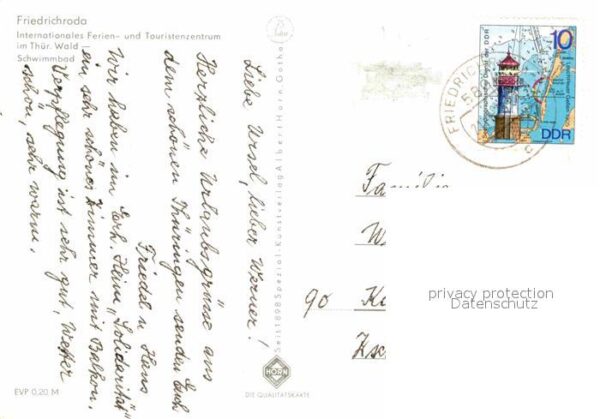 Friedrichroda
Internationales Ferien- und Touristenzentrum
im Thür. Wald
Schwimmbad
Liebe Ursel, lieber Werner!
Herzliche Urlaubsgrüsse aus
dem schönen Thüringen senden Euch
Friedel u Hans
Wir haben im Erh. Heim „Solidarität"
ein sehr schönes Zimmer mit Balkon.
Verpflegung ist sehr gut, Wetter
schön, sehr warm.
EVP 0,20 M
Seit 1898 Spezial-Kunstverlag Albert Horn Gotha
HORN
DIE QUALITÄTSKARTE
FRIEDRICH
10
DDR
Familie
W
90 K
Zsc
privacy protection
Datenschutz